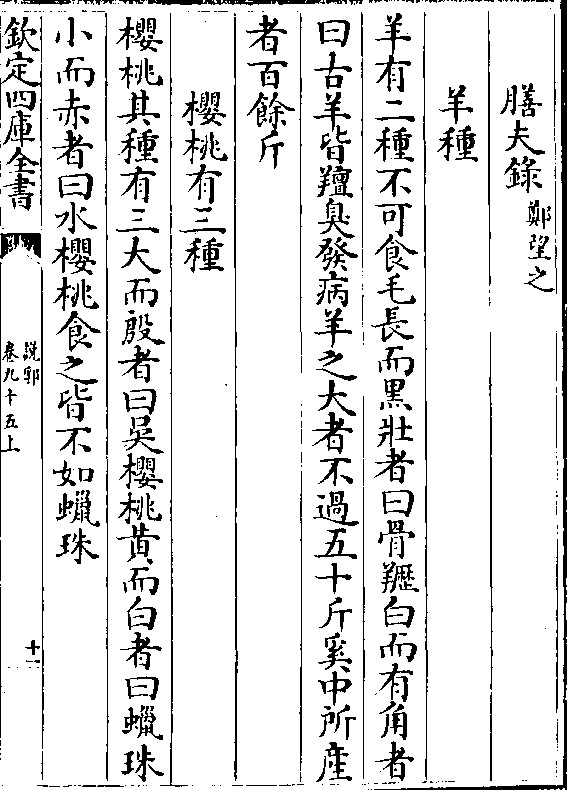 膳夫錄 鄭望之
羊種
羊有二種不可食毛長而黑壯者曰骨䍽白而有角者
曰古羊皆羶臭發病羊之大者不過五十斤奚中所產
者百餘斤
櫻桃有三種
櫻桃其種有三大而殷者曰吳櫻桃黄而白者曰蠟珠
小而赤者曰水櫻桃食之皆不如蠟珠
欽定四庫全書
說郛
卷九十五上
十一